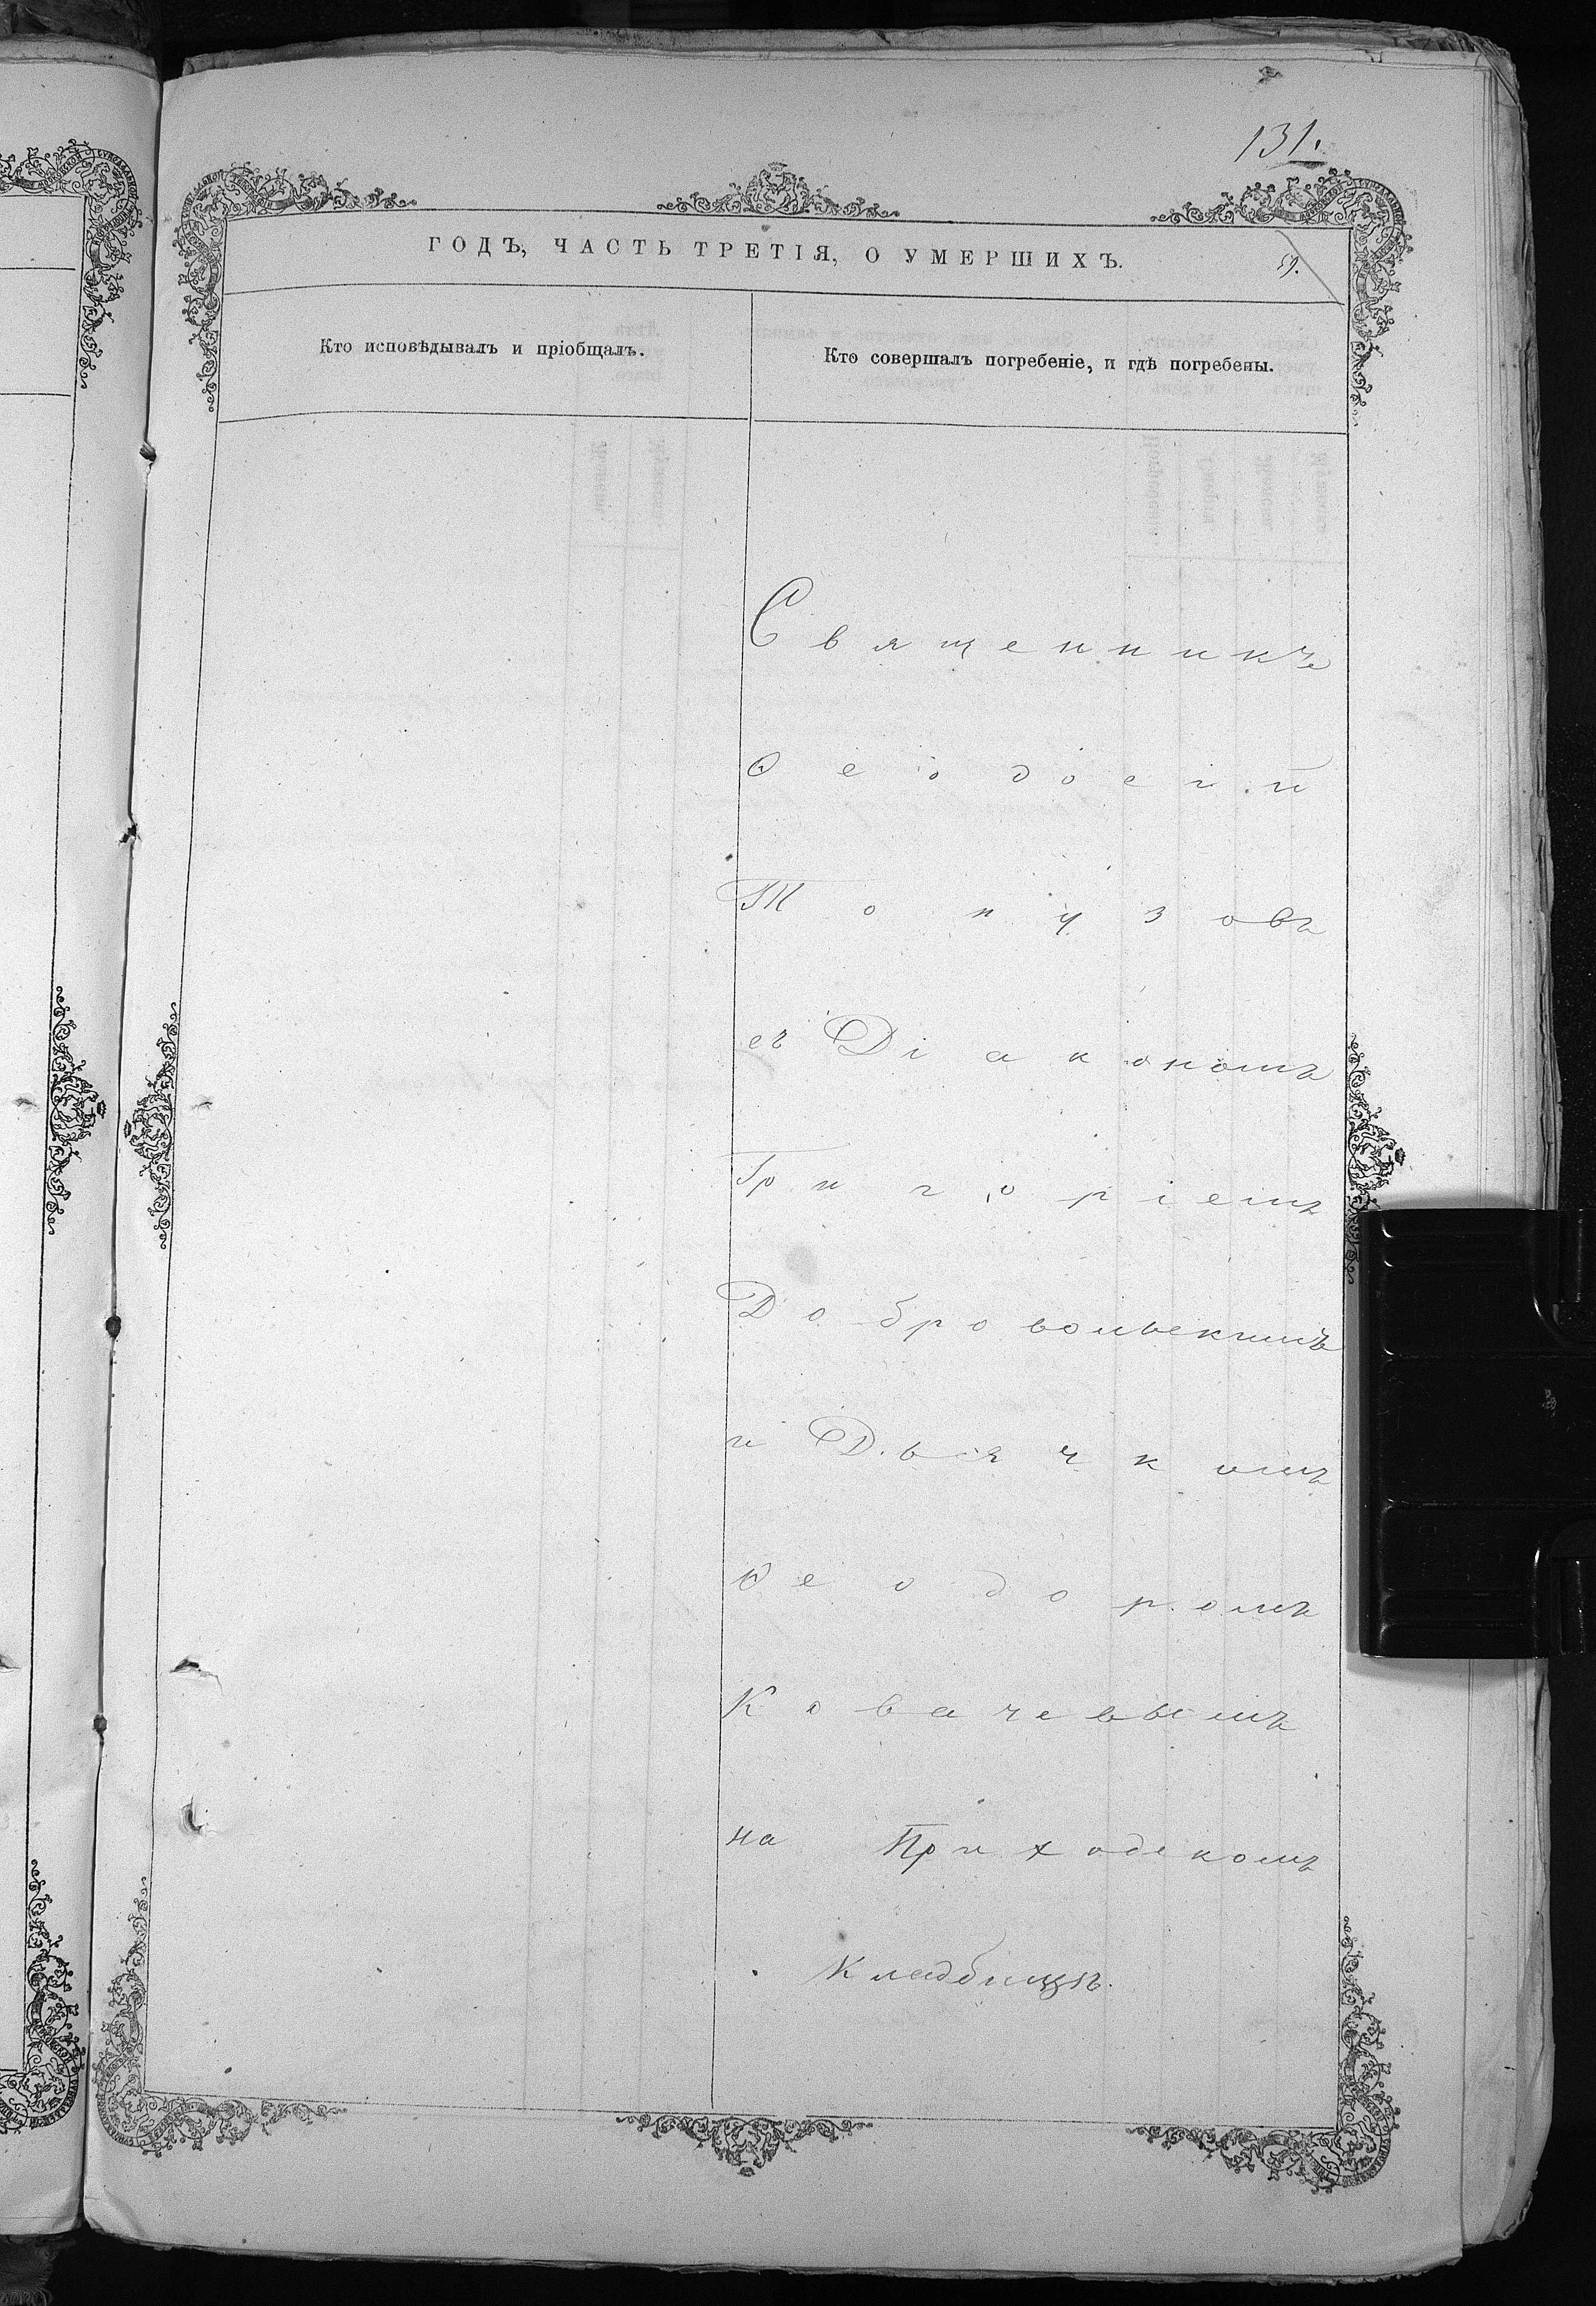 131.
ГОДЪ, ЧАСТЬ ТРЕТІЯ, О УМЕРШИХЪ.
59.
Кто исповѣдывалъ и пріобщалъ.
Кто совершалъ погребеніе, и гдѣ погребены.
Священникъ
Ѳеодосій
Топузовъ
съ Діакономъ
Григоріемъ
Добровольскимъ
и Дьячкомъ
Ѳеодоромъ
Ковачевымъ
на Приходскомъ
Кладбищѣ.